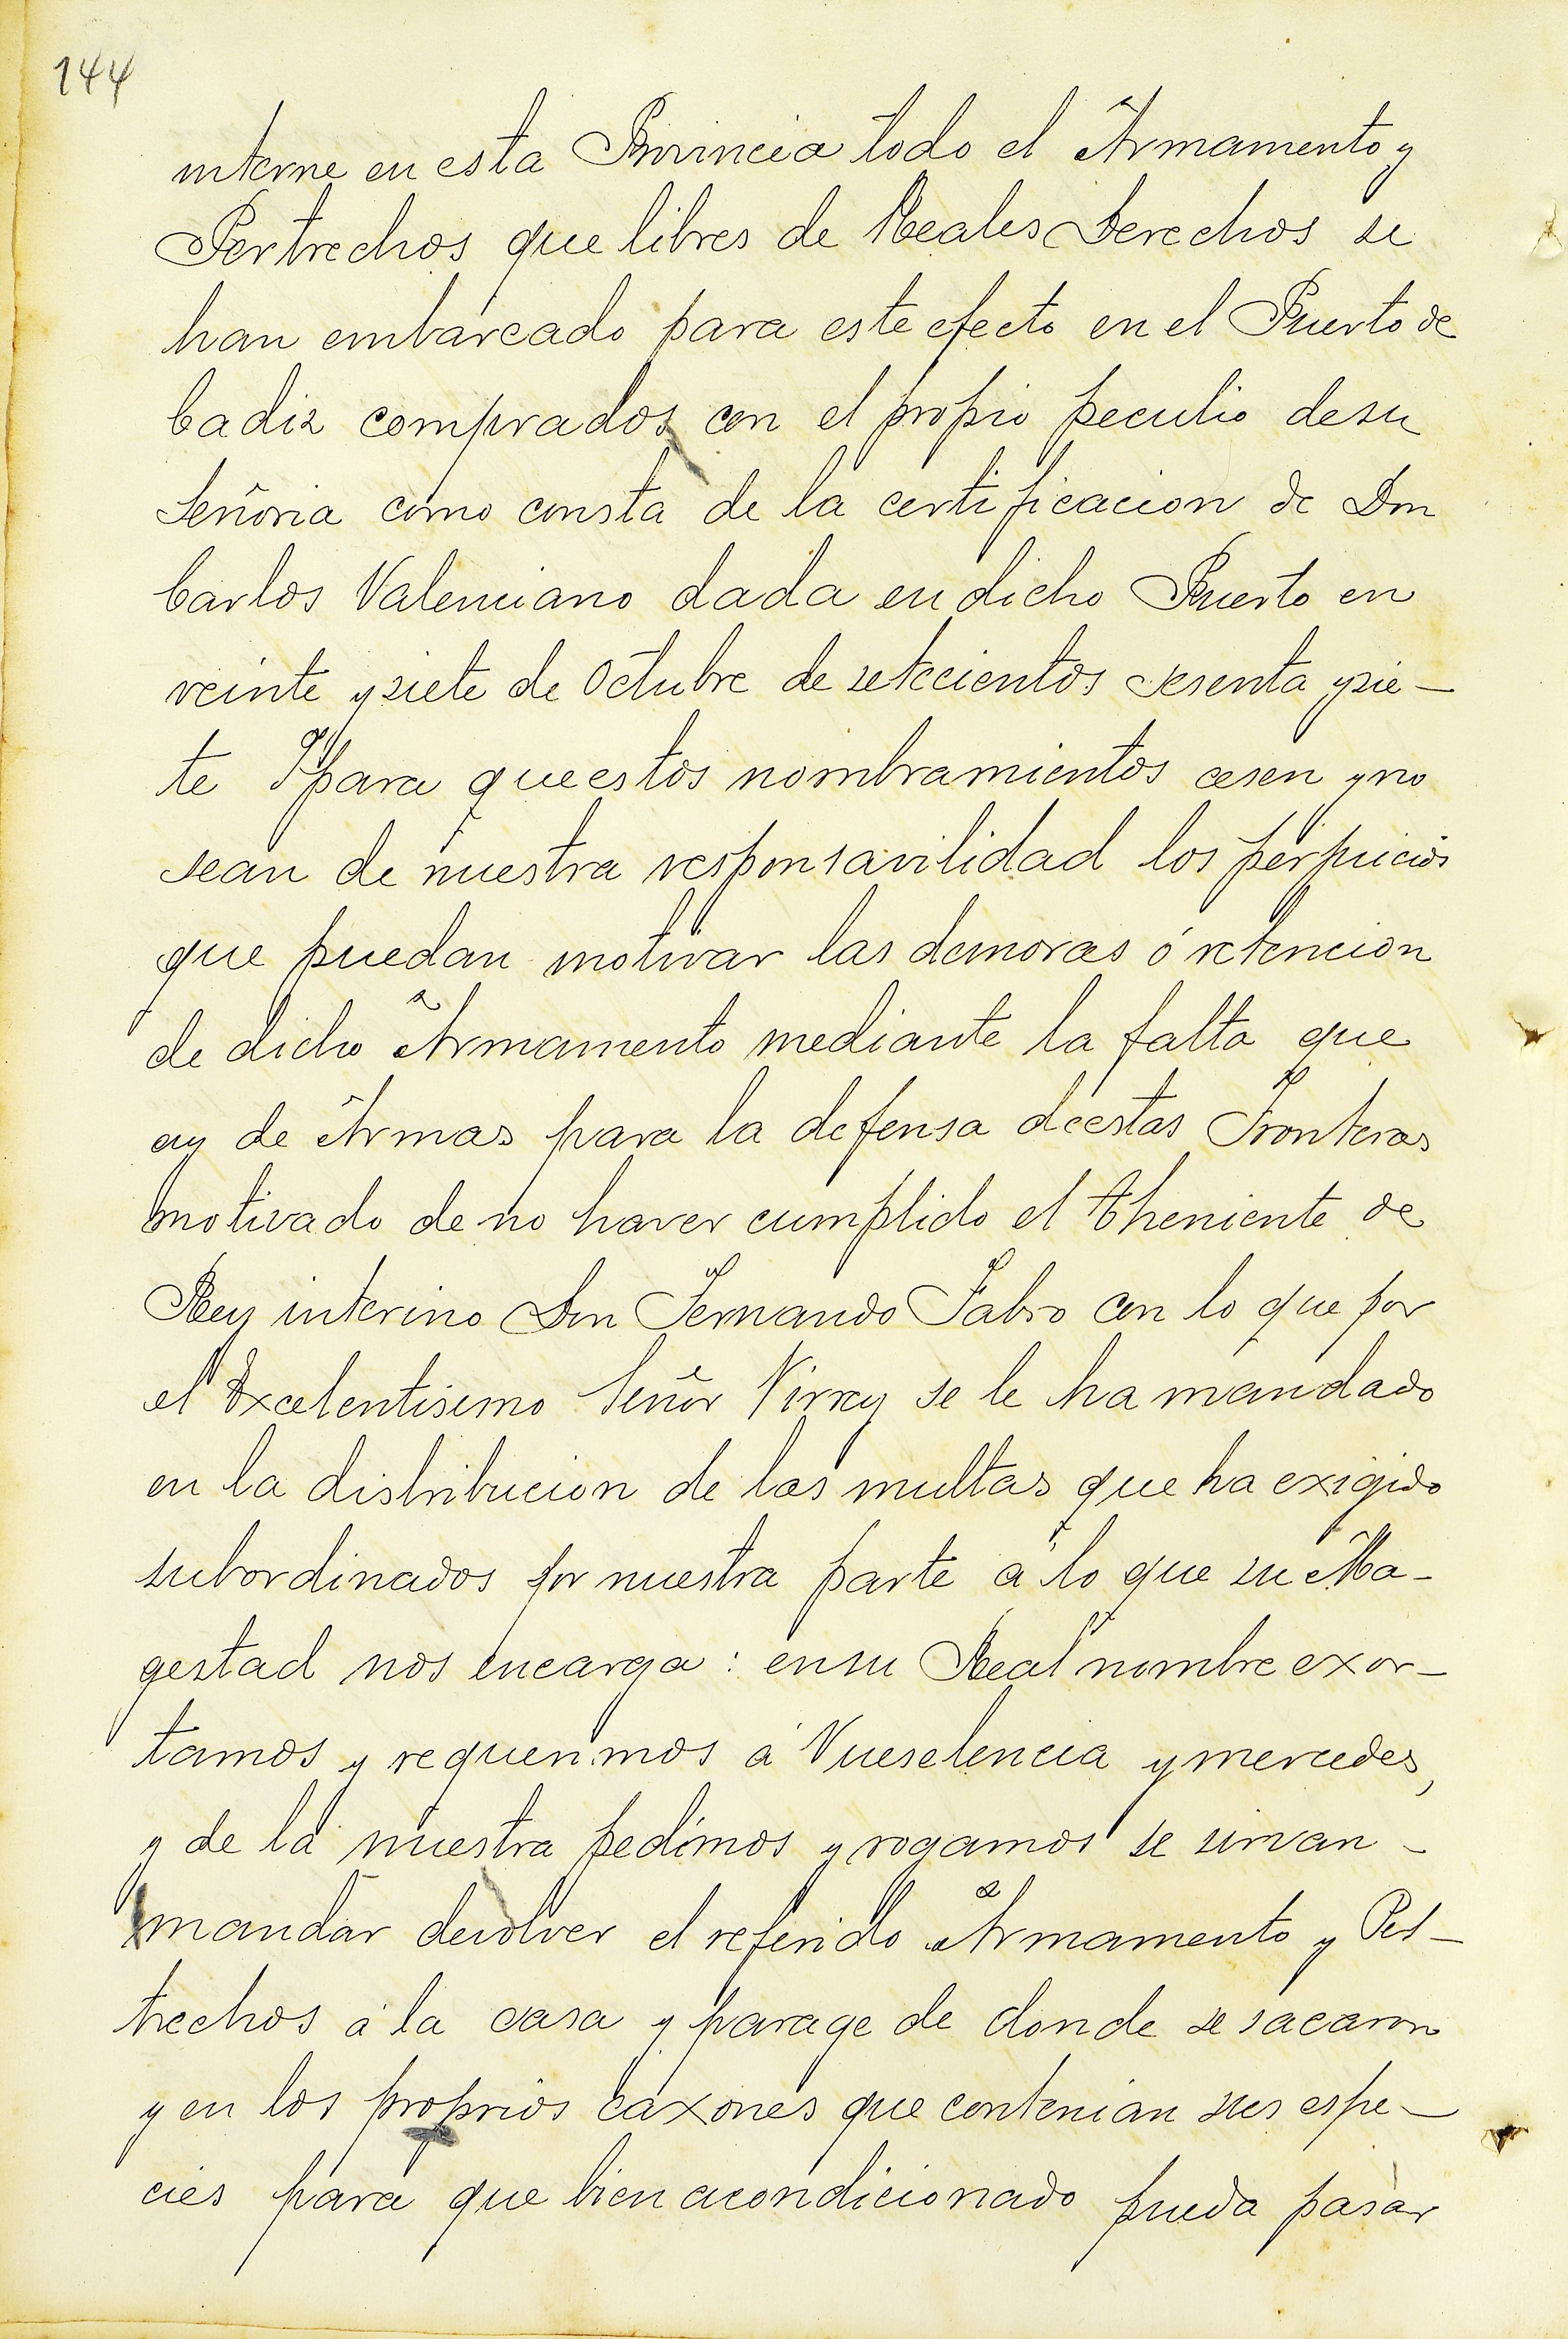 144
interne en esta Provincia todo el Armamento y
Pertrechos que libres de Reales Derechos se
han embarcado para este efecto en el Puerto de
Cadiz comprados con el propio peculio de su
Señoria como consta de la certificacion de Don
Carlos Valenciano dada en dicho Puerto en
veinte y siete de Octubre de setecientos sesenta y sie-
te Y para que estos nombramientos cesen y no
sean de nuestra responsavilidad los perjuicios
que puedan motivar las demoras ó retencion
de dicho Armamento mediante la falta que
ay de Armas para la defensa de estas Fronteras
motivado de no haver cumplido el Theniente de
Rey interino Don Fernando Fabro con lo que por
el Excelentisimo Señor Virrey se le ha mandado
en la distribucion de las multas que ha exigido
subordinados por nuestra parte á lo que su Ma-
gestad nos encarga: en su Real nombre exor-
tamos y requerimos á Vueselencia y mercedes,
y de la nuestra pedimos y rogamos se sirvan -
mandar devolver el referido Armamento y Per-
trechos á la casa y parage de donde se sacaron
y en los proprios caxones que contenian sus espe-
cies para que bien acondicionado pueda pasar